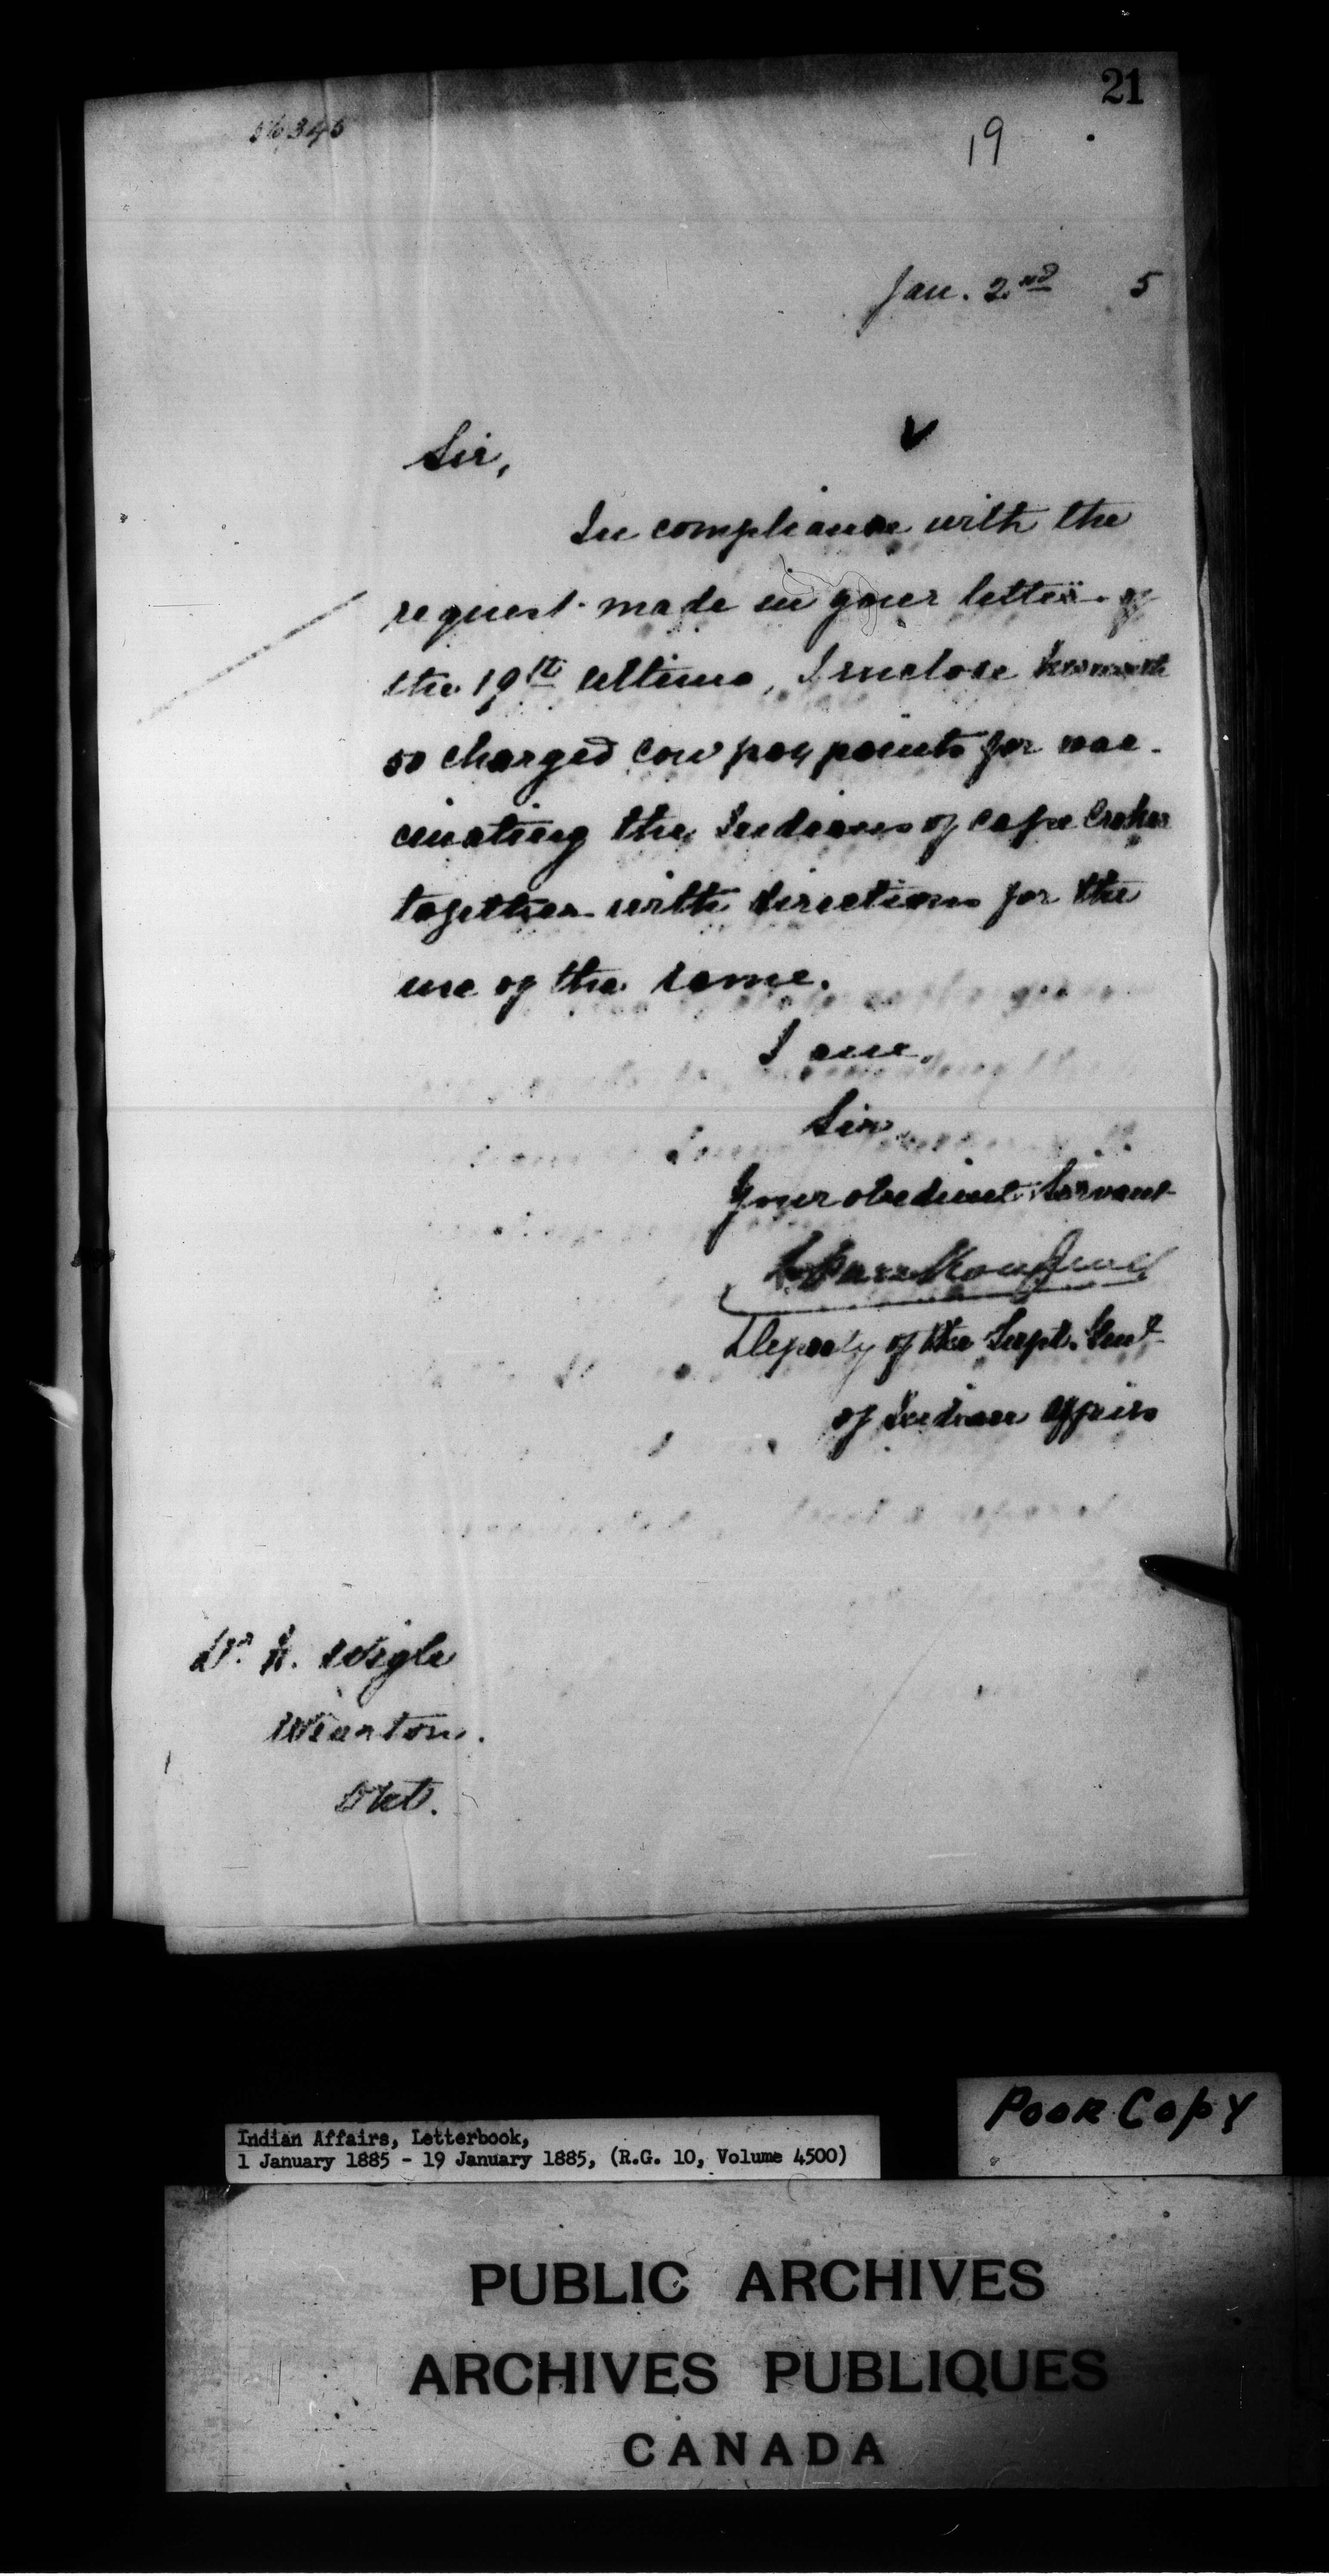 21
19
Jan. 2nd 5
Sir,
In compliance with the
request made in your letter of
the 19th ultimo, I enclose herewith
50 charged cow pox points for vac-
cinating the Indians of Cape Croker
together with directions for the
use of the same.
I am,
Sir
Your obedient Servant
Deputy of the Supt. Genl
of Indian Affairs
Dr. H. Wigle
Wiarton.
Ont.
Poor Copy
Indian Affairs, Letterbook,
1 January 1885 - 19 January 1885, (R.G. 10, Volume 4500)
PUBLIC ARCHIVES
ARCHIVES PUBLIQUES
CANADA